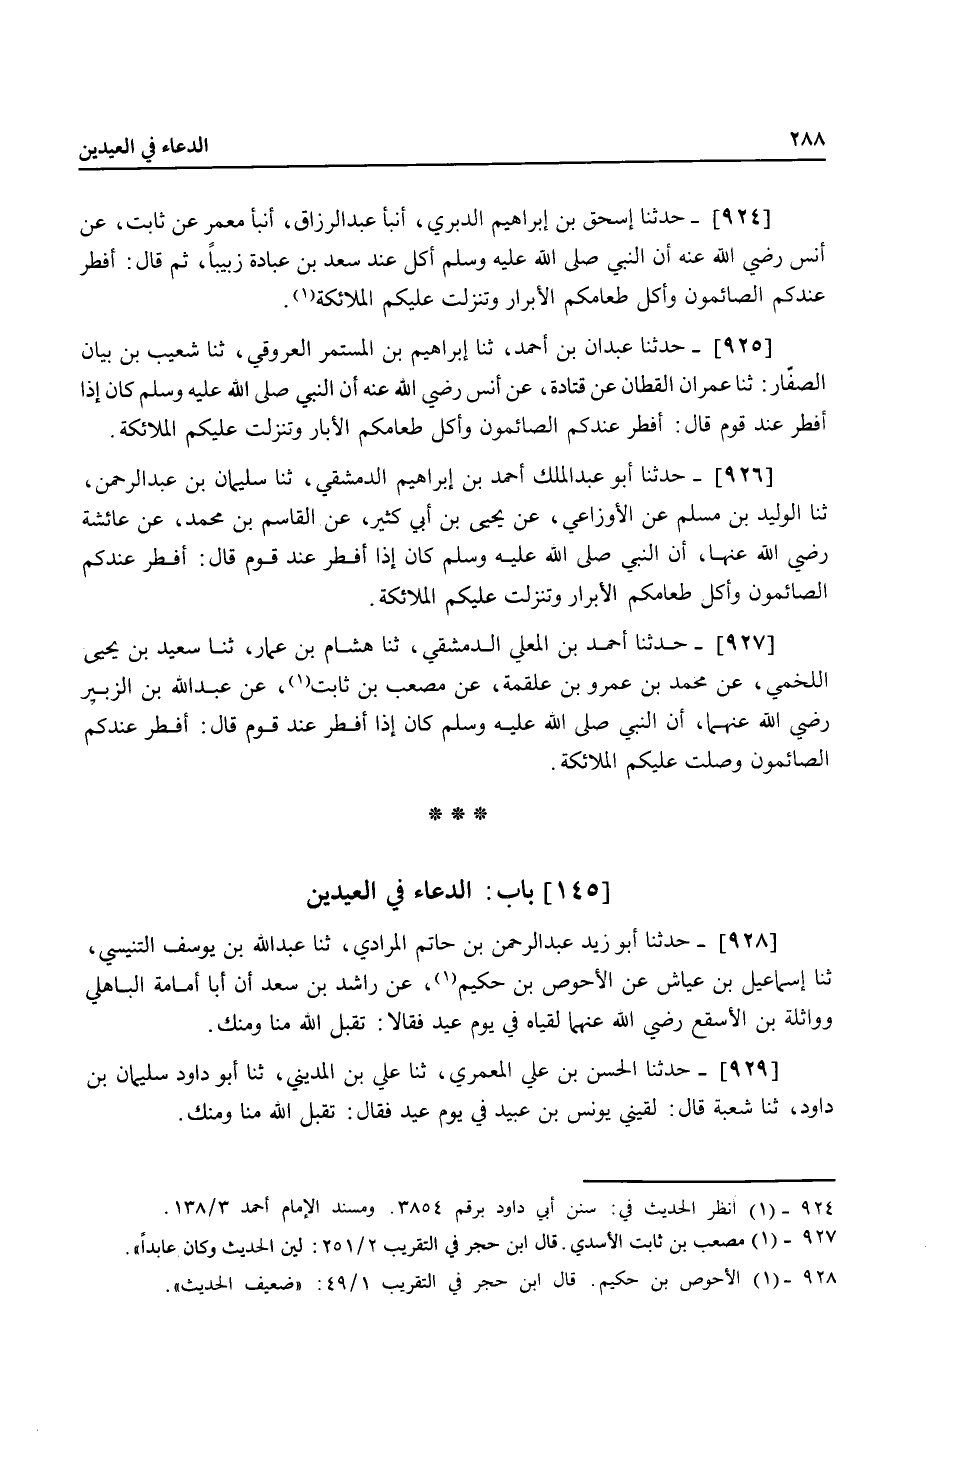 ٢٨٨ الدعاء في العيدين
[٩٢٤] ـ حدثنا إسحق بن إبراهيم الدبري، أنبأ عبدالرزاق، أنبأ معمر عن ثابت، عن
أنس رضي الله عنه أن النبي صلى الله عليه وسلم أكل عند سعد بن عبادة زبيباً، ثم قال: أفطر
عندكم الصائمون وأكل طعامكم الأبرار وتنزلت عليكم الملائكة(١).
[٩٢٥] ـ حدثنا عبدان بن أحمد، ثنا إبراهيم بن المستمر العروقي، ثنا شعيب بن بيان
الصفّار: ثنا عمران القطان عن قتادة، عن أنس رضي الله عنه أن النبي صلى الله عليه وسلم كان إذا
أفطر عند قوم قال: أفطر عندكم الصائمون وأكل طعامكم الأبار وتنزلت عليكم الملائكة.
[٩٢٦] ـ حدثنا أبو عبدالملك أحمد بن إبراهيم الدمشقي، ثنا سليمان بن عبدالرحمن،
ثنا الوليد بن مسلم عن الأوزاعي، عن يحيى بن أبي كثير، عن القاسم بن محمد، عن عائشة
رضي الله عنها، أن النبي صلى الله عليه وسلم كان إذا أفطر عند قوم قال: أفطر عندكم
الصائمون وأكل طعامكم الأبرار وتنزلت عليكم الملائكة.
[٩٢٧] ـ حدثنا أحمد بن المعلي الدمشقي، ثنا هشام بن عمار، ثنا سعيد بن يحيى
اللخمي، عن محمد بن عمرو بن علقمة، عن مصعب بن ثابت(١)، عن عبدالله بن الزبير
رضي الله عنهما، أن النبي صلى الله عليه وسلم كان إذا أفطر عند قوم قال: أفطر عندكم
الصائمون وصلت عليكم الملائكة.
* * *
[١٤٥] باب: الدعاء في العيدين
[٩٢٨] ـ حدثنا أبو زيد عبدالرحمن بن حاتم المرادي، ثنا عبدالله بن يوسف التنيسي،
ثنا إسماعيل بن عياش عن الأحوص بن حكيم(١)، عن راشد بن سعد أن أبا أمامة الباهلي
وواثلة بن الأسقع رضي الله عنهما لقياه في يوم عيد فقالا: تقبل الله منا ومنك.
[٩٢٩] ـ حدثنا الحسن بن علي المعمري، ثنا علي بن المديني، ثنا أبو داود سليمان بن
داود، ثنا شعبة قال: لقيني يونس بن عبيد في يوم عيد فقال: تقبل الله منا ومنك.
٩٢٤ ـ (١) أنظر الحديث في: سنن أبي داود برقم ٣٨٥٤. ومسند الإمام أحمد ١٣٨/٣.
٩٢٧ ـ (١) مصعب بن ثابت الأسدي. قال ابن حجر في التقريب ٢٥١/٢: لين الحديث وكان عابداً».
٩٢٨ ـ (١) الأحوص بن حكيم. قال ابن حجر في التقريب ٤٩/١: «ضعيف الحديث».